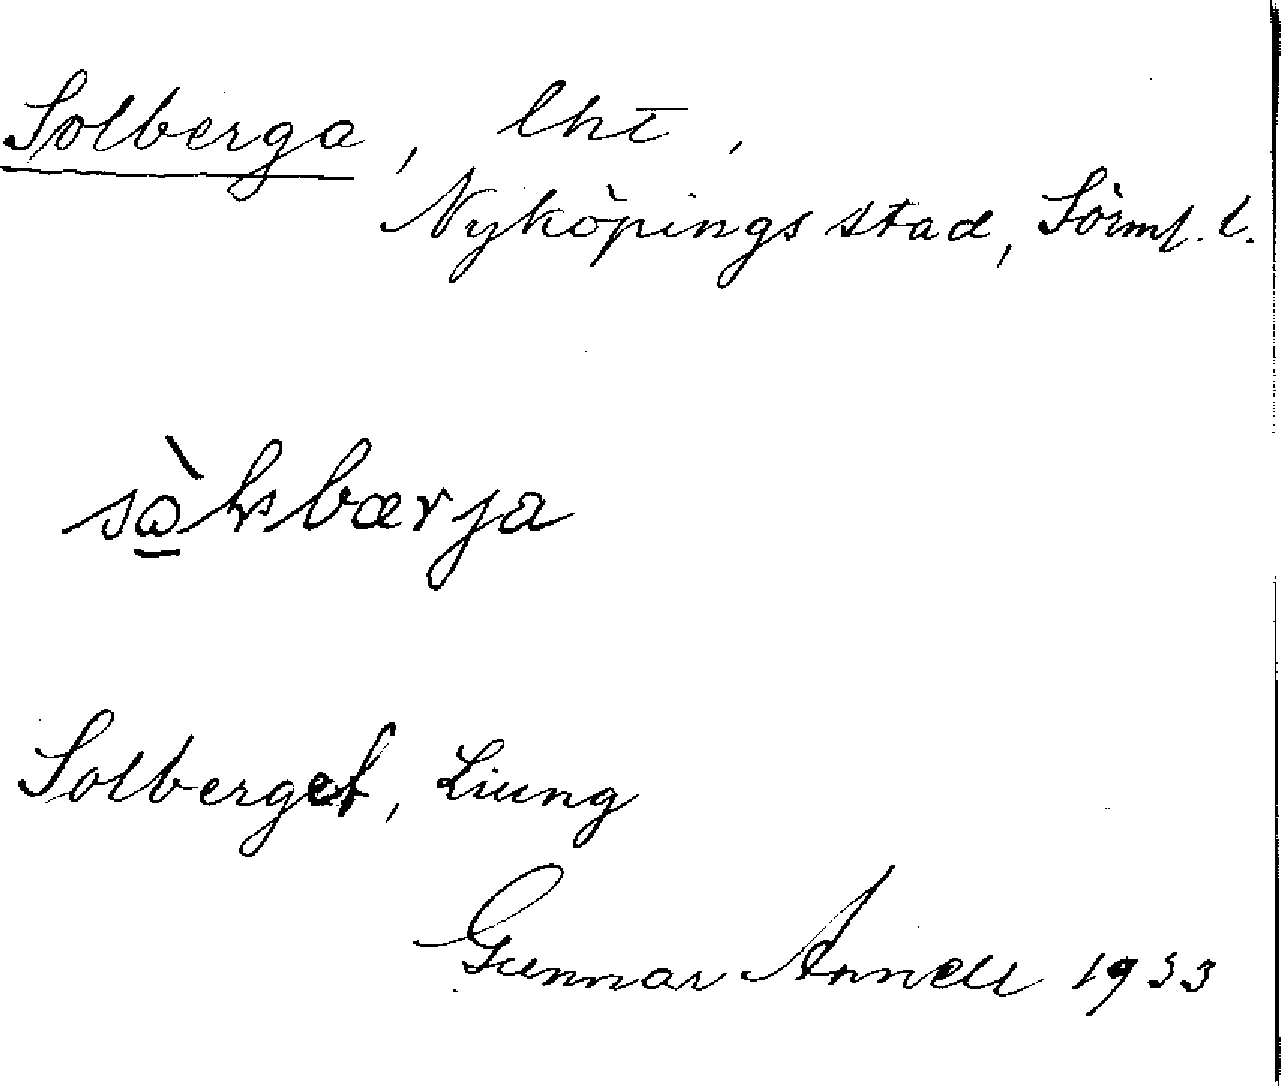 Solberga, lht,
Nyköpings stad, Sörml. l.
Solberget, Liung
Gunnar Annell 1933